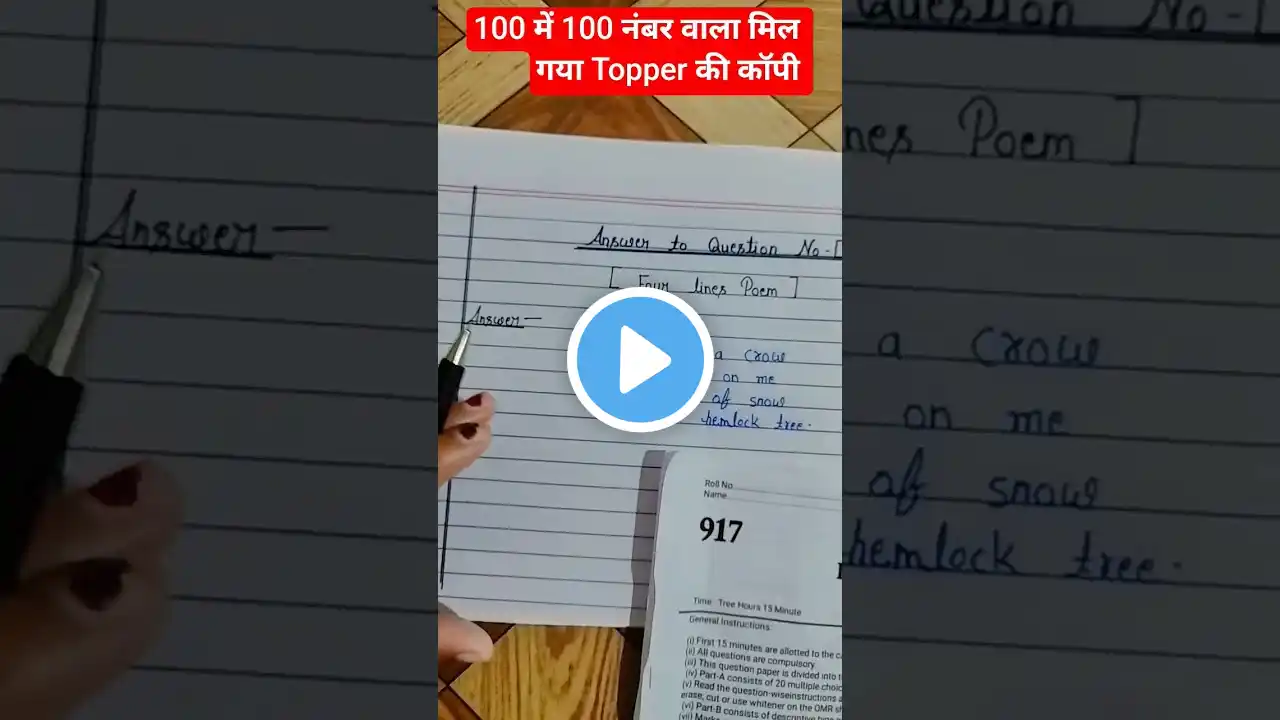 100 में 100 नंबर वाला मिल
गया Topper की कॉपी
Answer to Question No-
[ Four lines Poem ]
Answer-
a crow
on me
of snow
hemlock tree.
Roll No
Name
917
Time Tree Hours 15 Minute
General Instructions:
(i) First 15 minutes are allotted to the
(ii) All questions are compulsory.
(iii) This question paper is divided into
(iv) Part-A consists of 20 multiple
(v) Read the question-wiseinstructions
erase, cut or use whitener on the OMR
(vi) Part-B consists of descriptive
(vii)